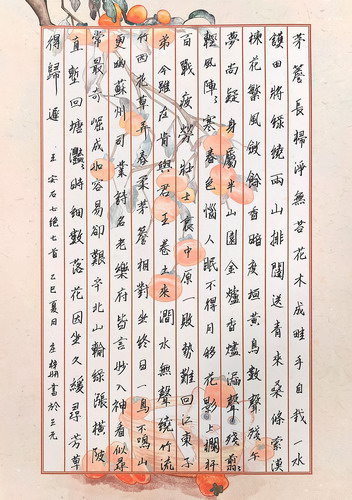 茅簷長掃淨無苔花木成畦手自栽一水
護田將綠繞兩山排闥送青來桑條索漠
楝花繁風斂餘香暗度垣黃鳥數聲殘午
夢尚疑身屬半山園金爐香燼漏聲殘翦〻
輕風陣〻寒春色惱人眠不得月移花影上欄杆
百戰疲勞壯士哀中原一敗勢難回江東子
弟今雖在肯與君王卷土來澗水無聲繞竹流
竹西花草弄春柔茅簷相對坐終日一鳥不鳴山
更幽蘇州司業詩名老樂府皆言妙入神看似尋
常最奇崛成如容易卻艱辛北山輸綠漲橫陂
直塹回塘灩〻時細數落花因坐久緩尋芳草
得歸遲 王安石七絕七首 乙巳夏月 書於三元